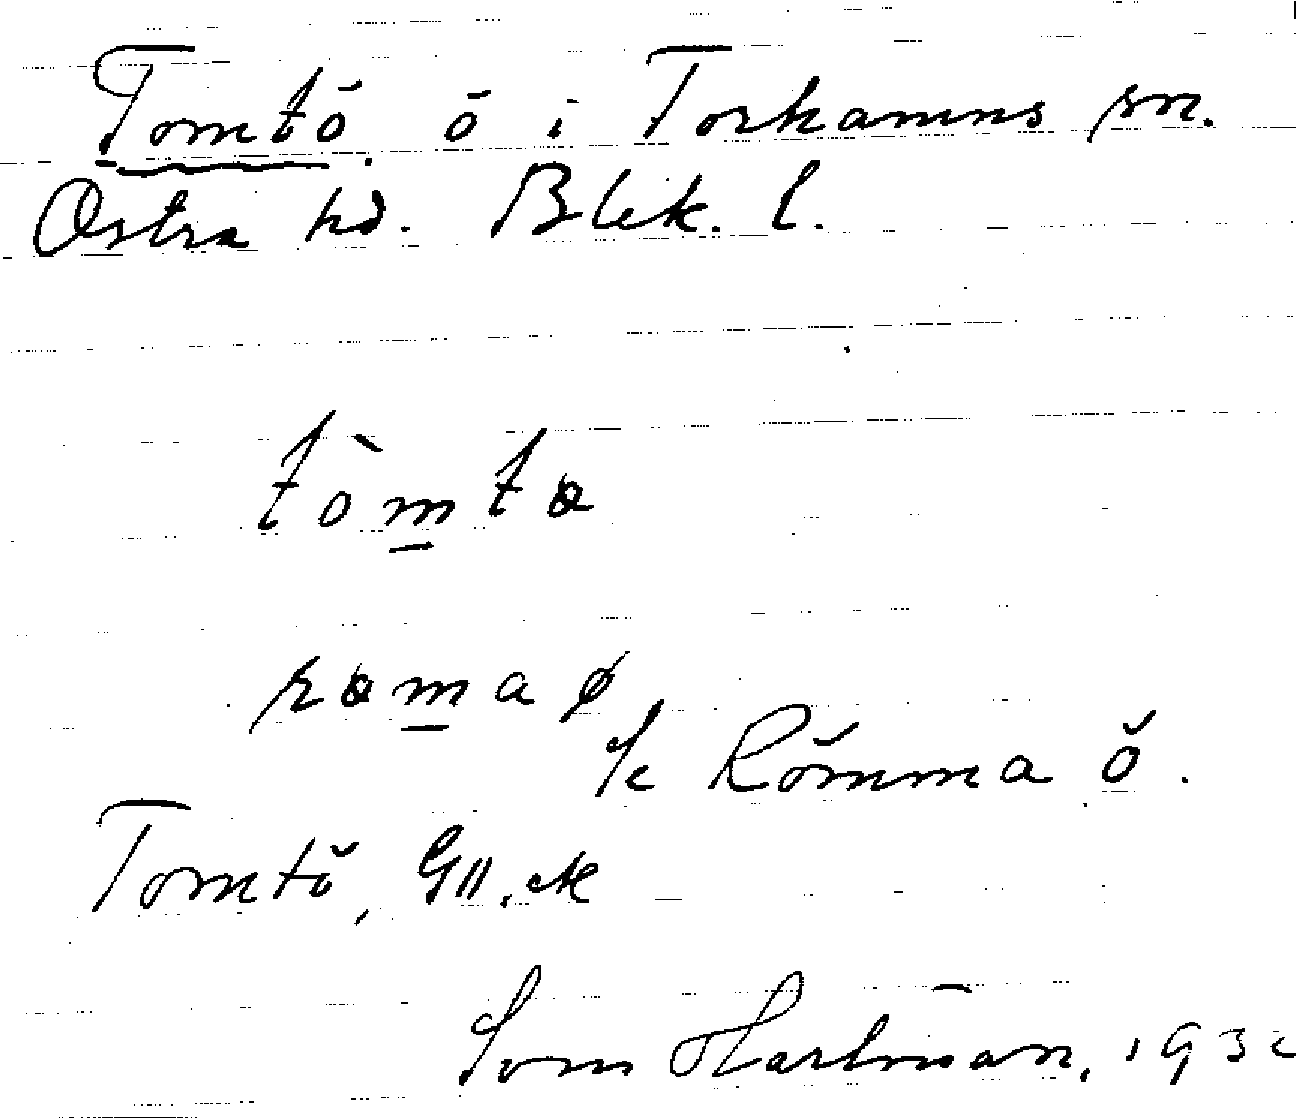 Tomtö. ö i Torhamns sn.
Östra hd. Blek. l.
tòmtə
. rømaø
Römma ö.
Tomtö, GII. ek
Sven Hartman, 193